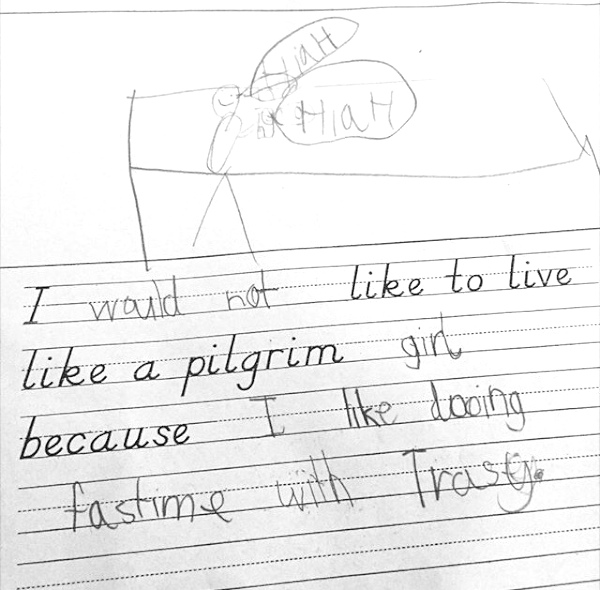 HiaH
HiaH
I would not like to live
like a pilgrim girl
because I like dooing
fastime with Trasy.